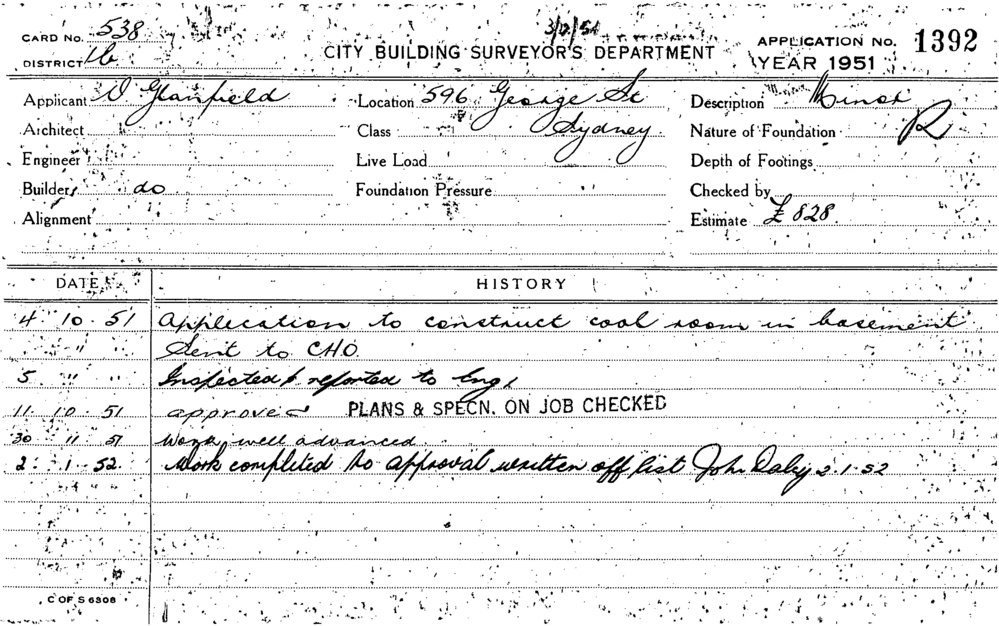 CARD No. 538
DISTRICT
CITY BUILDING SURVEYOR'S DEPARTMENT
APPLICATION No. 1392
YEAR 1951
Applicant D Glanfield
Location 596 George St
Sydney
Description Minor
R
Architect
Class
Nature of Foundation
Engineer
Live Load
Depth of Footings
Builder do
Foundation Pressure
Checked by
Alignment
Estimate £ 828.
DATE
HISTORY
4 10 51 Application to construct cool room in basement
" " Sent to CHO.
5 " " Inspected & reported to Eng.
11 10 51 approved PLANS & SPECN. ON JOB CHECKED
30 11 51 Work well advanced
2 1 52 Work completed to approval written off list John Daley 2.1.52
C OF S 6308